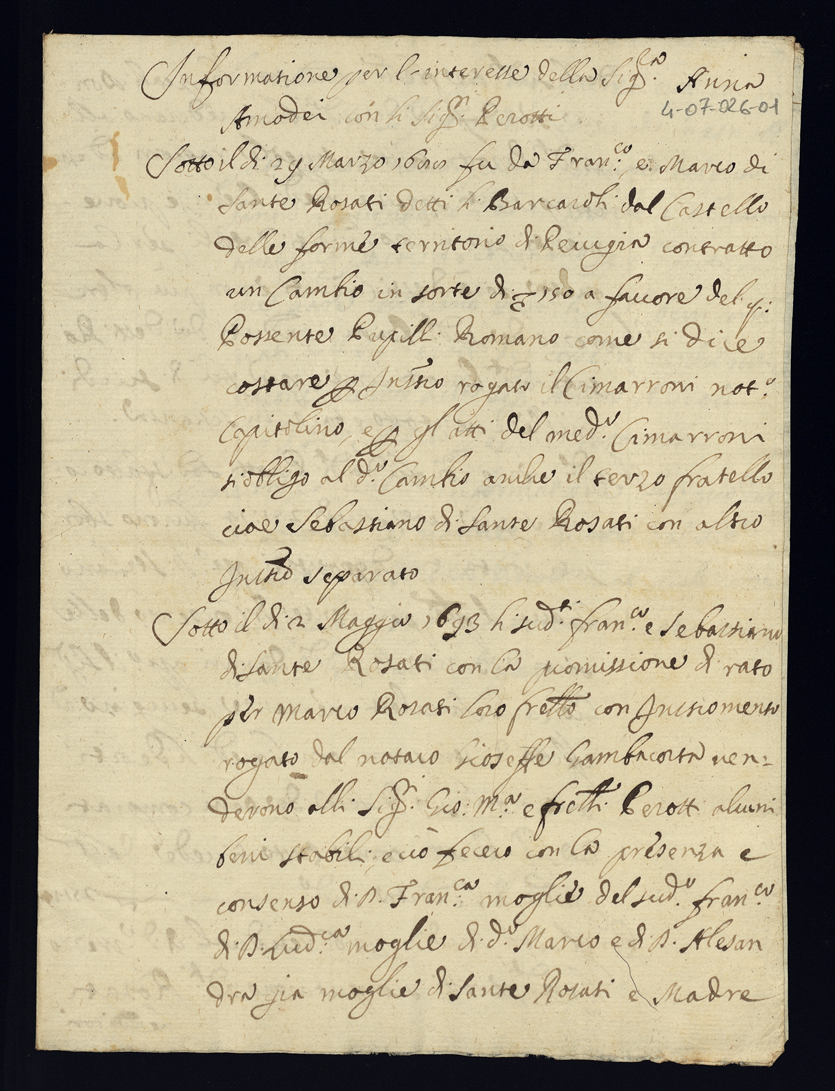 Informatione per l'interesse della Sig.ra Anna
4-07-026-01
Amodei con li Sig.ri Perotti
Sotto il dì 29 Marzo fu da Fran.co, e Marco di
Sante Rosati detti li Barcaroli dal Castello
delle forme territorio di Perugia contratto
un Cambio in sorte di 150 a favore del q:
Possente Pupilli Romano come si dice
costare p Instro rogato il Cimarroni not.o
Capitolino, e p gl'atti del med.o Cimarroni
si obligo al d.o Cambio anche il terzo fratello
cioe Sebastiano di Sante Rosati con altro
Instro separato
Sotto il dì 2 Maggio 1693 li sud.ti fran.co e Sebastiano
di Sante Rosati con la promissione di rato
per Marco Rosati loro frello con Instromento
rogato dal notaro Gioseffe Gambacorta ven=
derono alli Sig.ri Gio: M.a e frelli Perotti alcuni
beni stabili, e ciò fecero con la presenza e
consenso di D. Fran.ca moglie del sud.o fran.co
di D. Lud.ca moglie di d.o Marco e di D. Alesan
dra già moglie di Sante Rosati e Madre